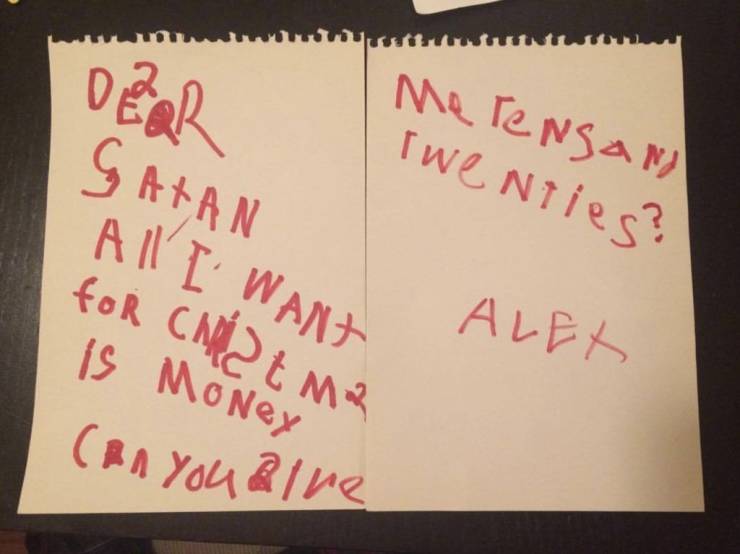 DEaR
SAtAN
All I WANt
foR CMiStMa
is MoNey
Can you Give
Me TeNSaNd
TweNTies?
ALEX